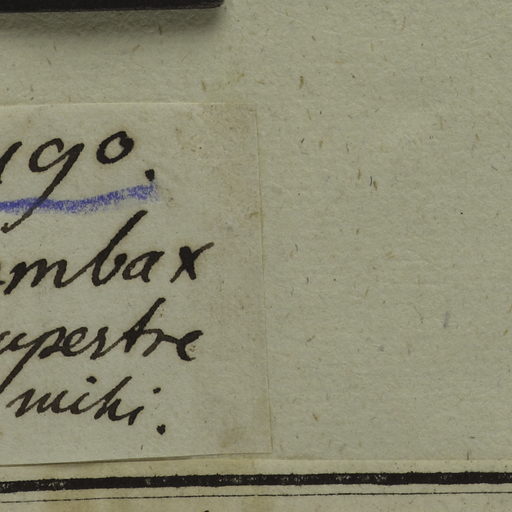 190.
mbax
upestre
mihi.